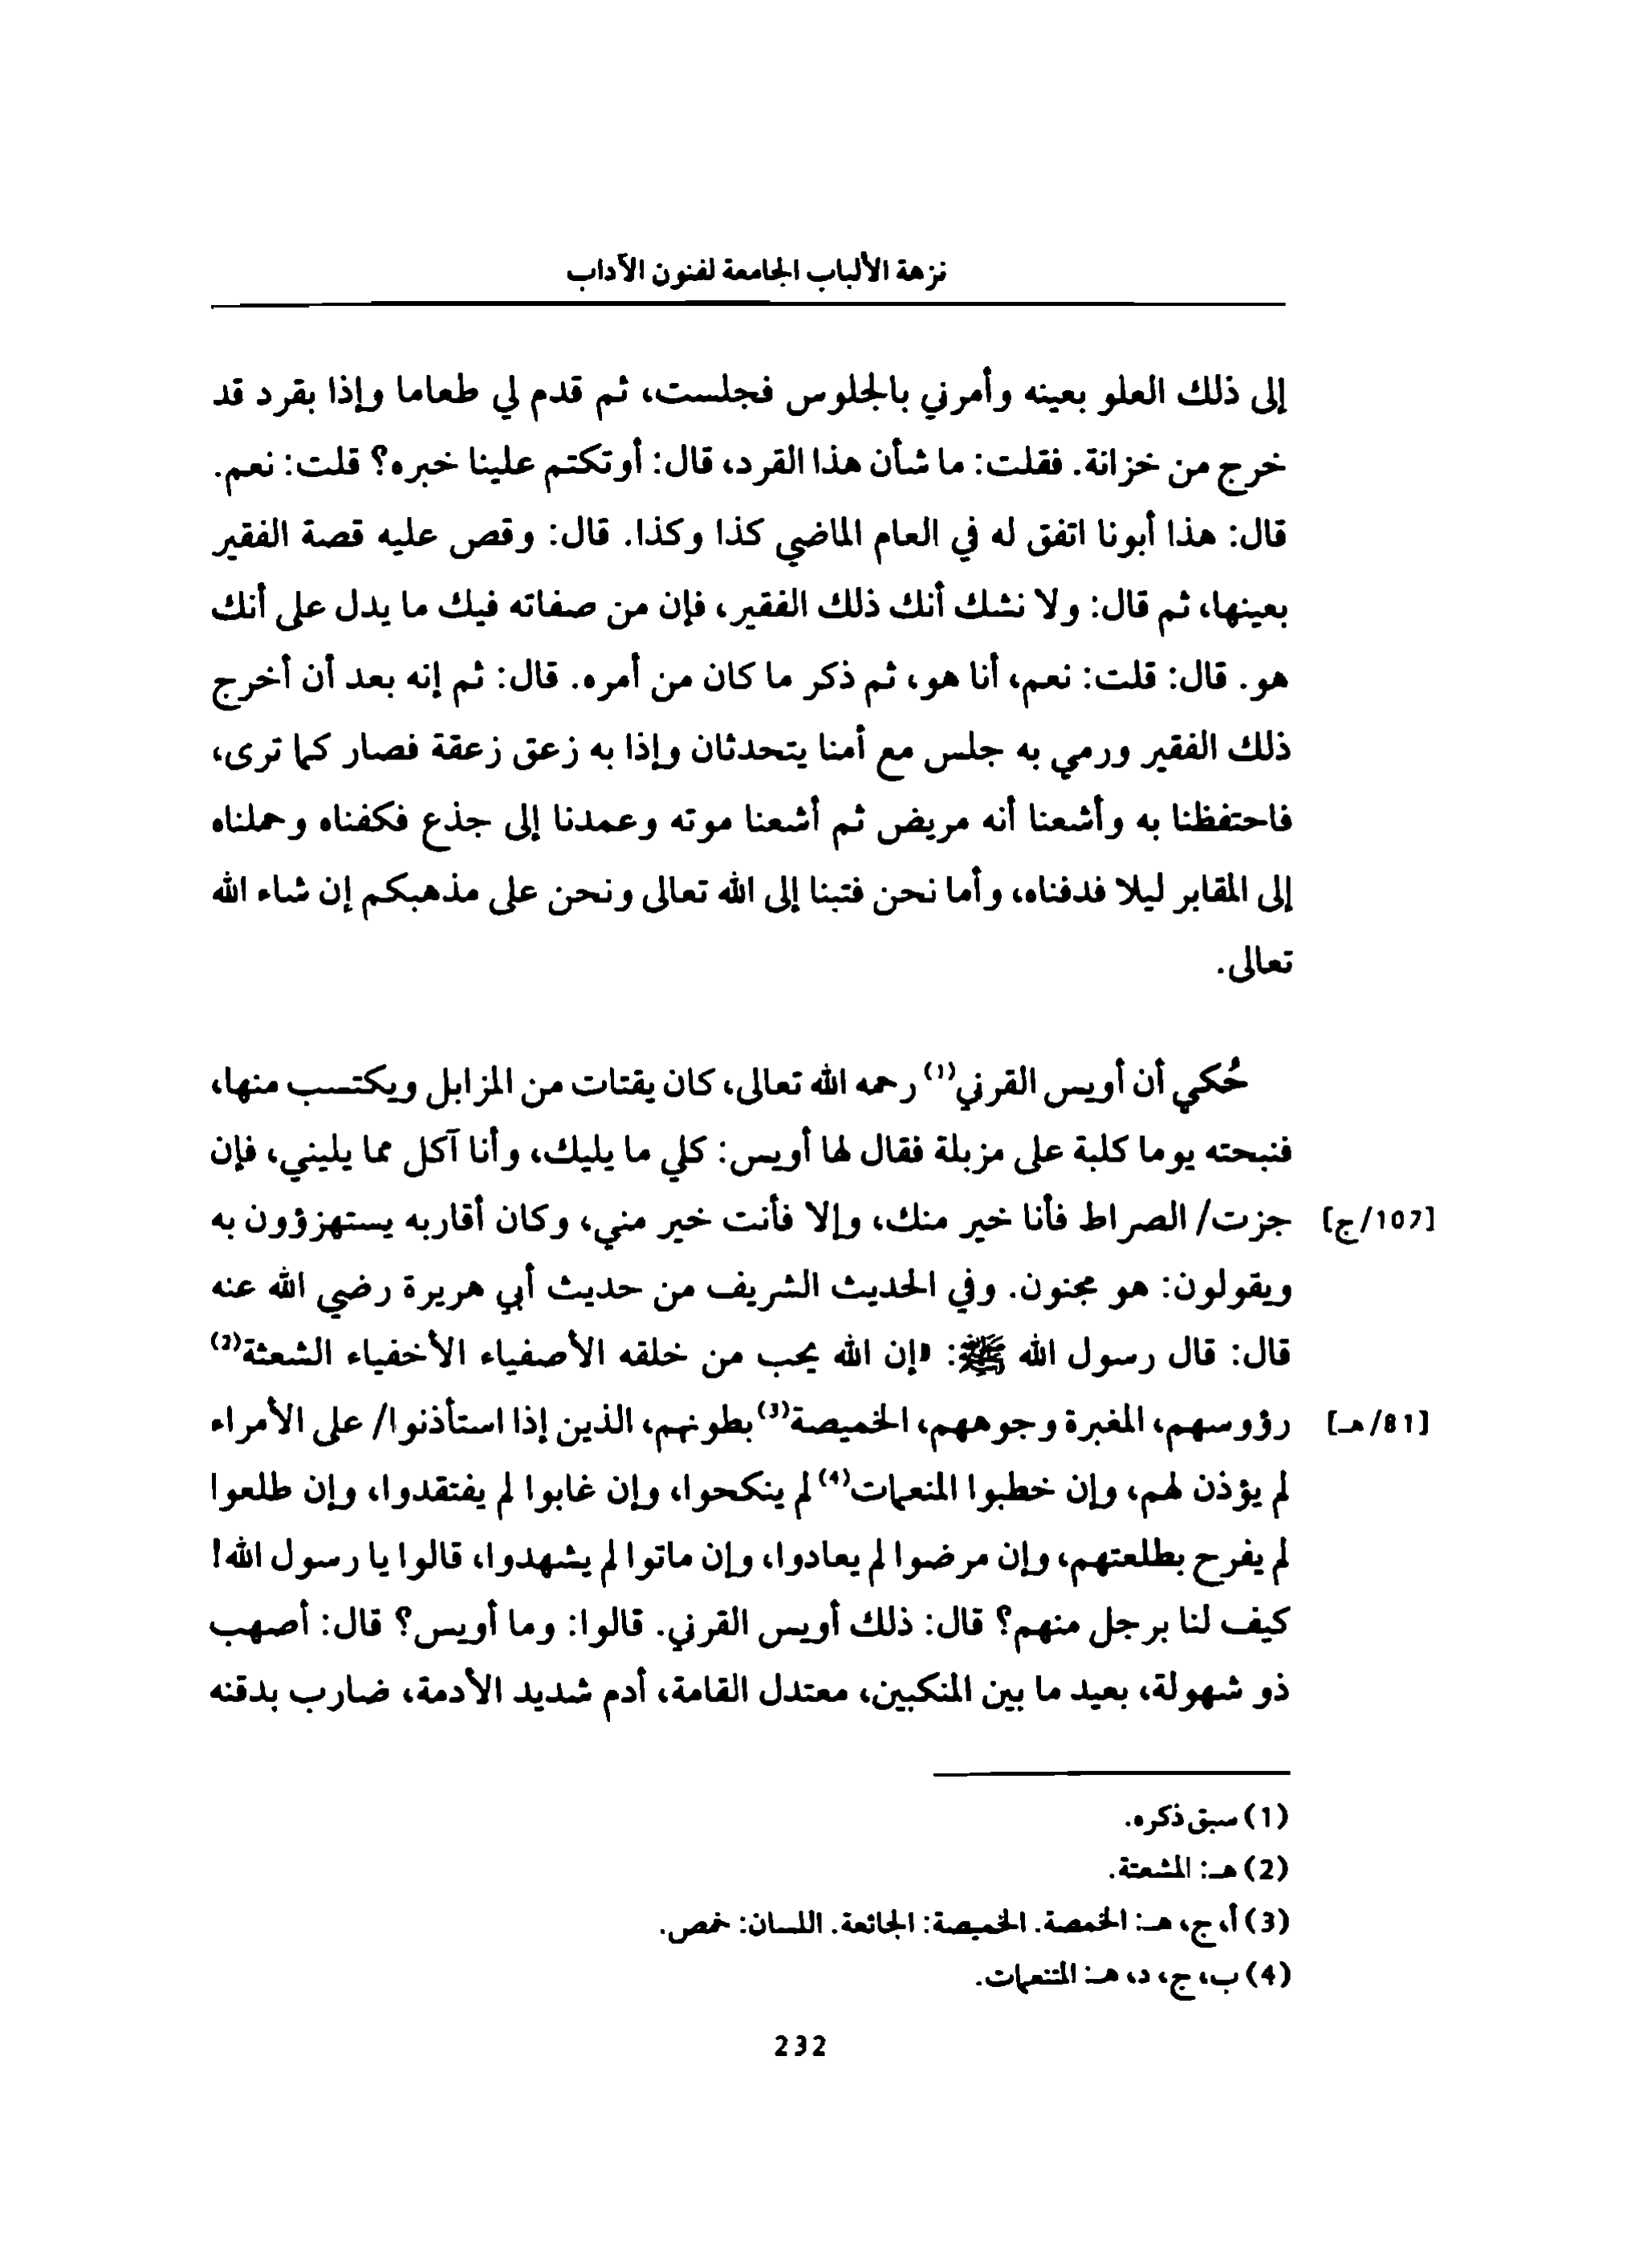 نزهة الألباب الجامعة لفنون الآداب
إلى ذلك العلو بعينه وأمرني بالجلوس فجلست، ثم قدم لي طعاما وإذا بقرد قد
خرج من خزانة. فقلت: ما شأن هذا القرد، قال: أوتكتم علينا خبره؟ قلت: نعم.
قال: هذا أبونا اتفق له في العام الماضي كذا وكذا. قال: وقص عليه قصة الفقير
بعينها، ثم قال: ولا نشك أنك ذلك الفقير، فإن من صفاته فيك ما يدل على أنك
هو. قال: قلت: نعم، أنا هو، ثم ذكر ما كان من أمره. قال: ثم إنه بعد أن أخرج
ذلك الفقير ورمي به جلس مع أمنا يتحدثان وإذا به زعق زعقة فصار كما ترى،
فاحتفظنا به وأشعنا أنه مريض ثم أشعنا موته وعمدنا إلى جذع فكفناه وحملناه
إلى المقابر ليلا فدفناه، وأما نحن فتبنا إلى الله تعالى ونحن على مذهبكم إن شاء الله
تعالى.
حُكي أن أويس القرني(1) رحمه الله تعالى، كان يقتات من المزابل ويكتسب منها،
فنبحته يوما كلبة على مزبلة فقال لها أويس: كلي ما يليك، وأنا آكل مما يليني، فإن
[107/ج] جزت/ الصراط فأنا خير منك، وإلا فأنت خير مني، وكان أقاربه يستهزؤون به
ويقولون: هو مجنون. وفي الحديث الشريف من حديث أبي هريرة رضي الله عنه
قال: قال رسول الله ﷺ: «إن الله يحب من خلقه الأصفياء الأخفياء الشعثة(2)
[81/هـ] رؤوسهم، المغبرة وجوههم، الخميصة(3) بطونهم، الذين إذا استأذنوا/ على الأمراء
لم يؤذن لهم، وإن خطبوا المنعمات(4) لم ينكحوا، وإن غابوا لم يفتقدوا، وإن طلعوا
لم يفرح بطلعتهم، وإن مرضوا لم يعادوا، وإن ماتوا لم يشهدوا، قالوا يا رسول الله!
كيف لنا برجل منهم؟ قال: ذلك أويس القرني. قالوا: وما أويس؟ قال: أصهب
ذو شهولة، بعيد ما بين المنكبين، معتدل القامة، أدم شديد الأدمة، ضارب بدقنه
(1) سبق ذكره.
(2) هـ: المشعتة.
(3) أ، ج، هـ: الخمصة. الخميصة: الجائعة. اللسان: خمص.
(4) ب، ج، د، هـ: المتنعمات.
232